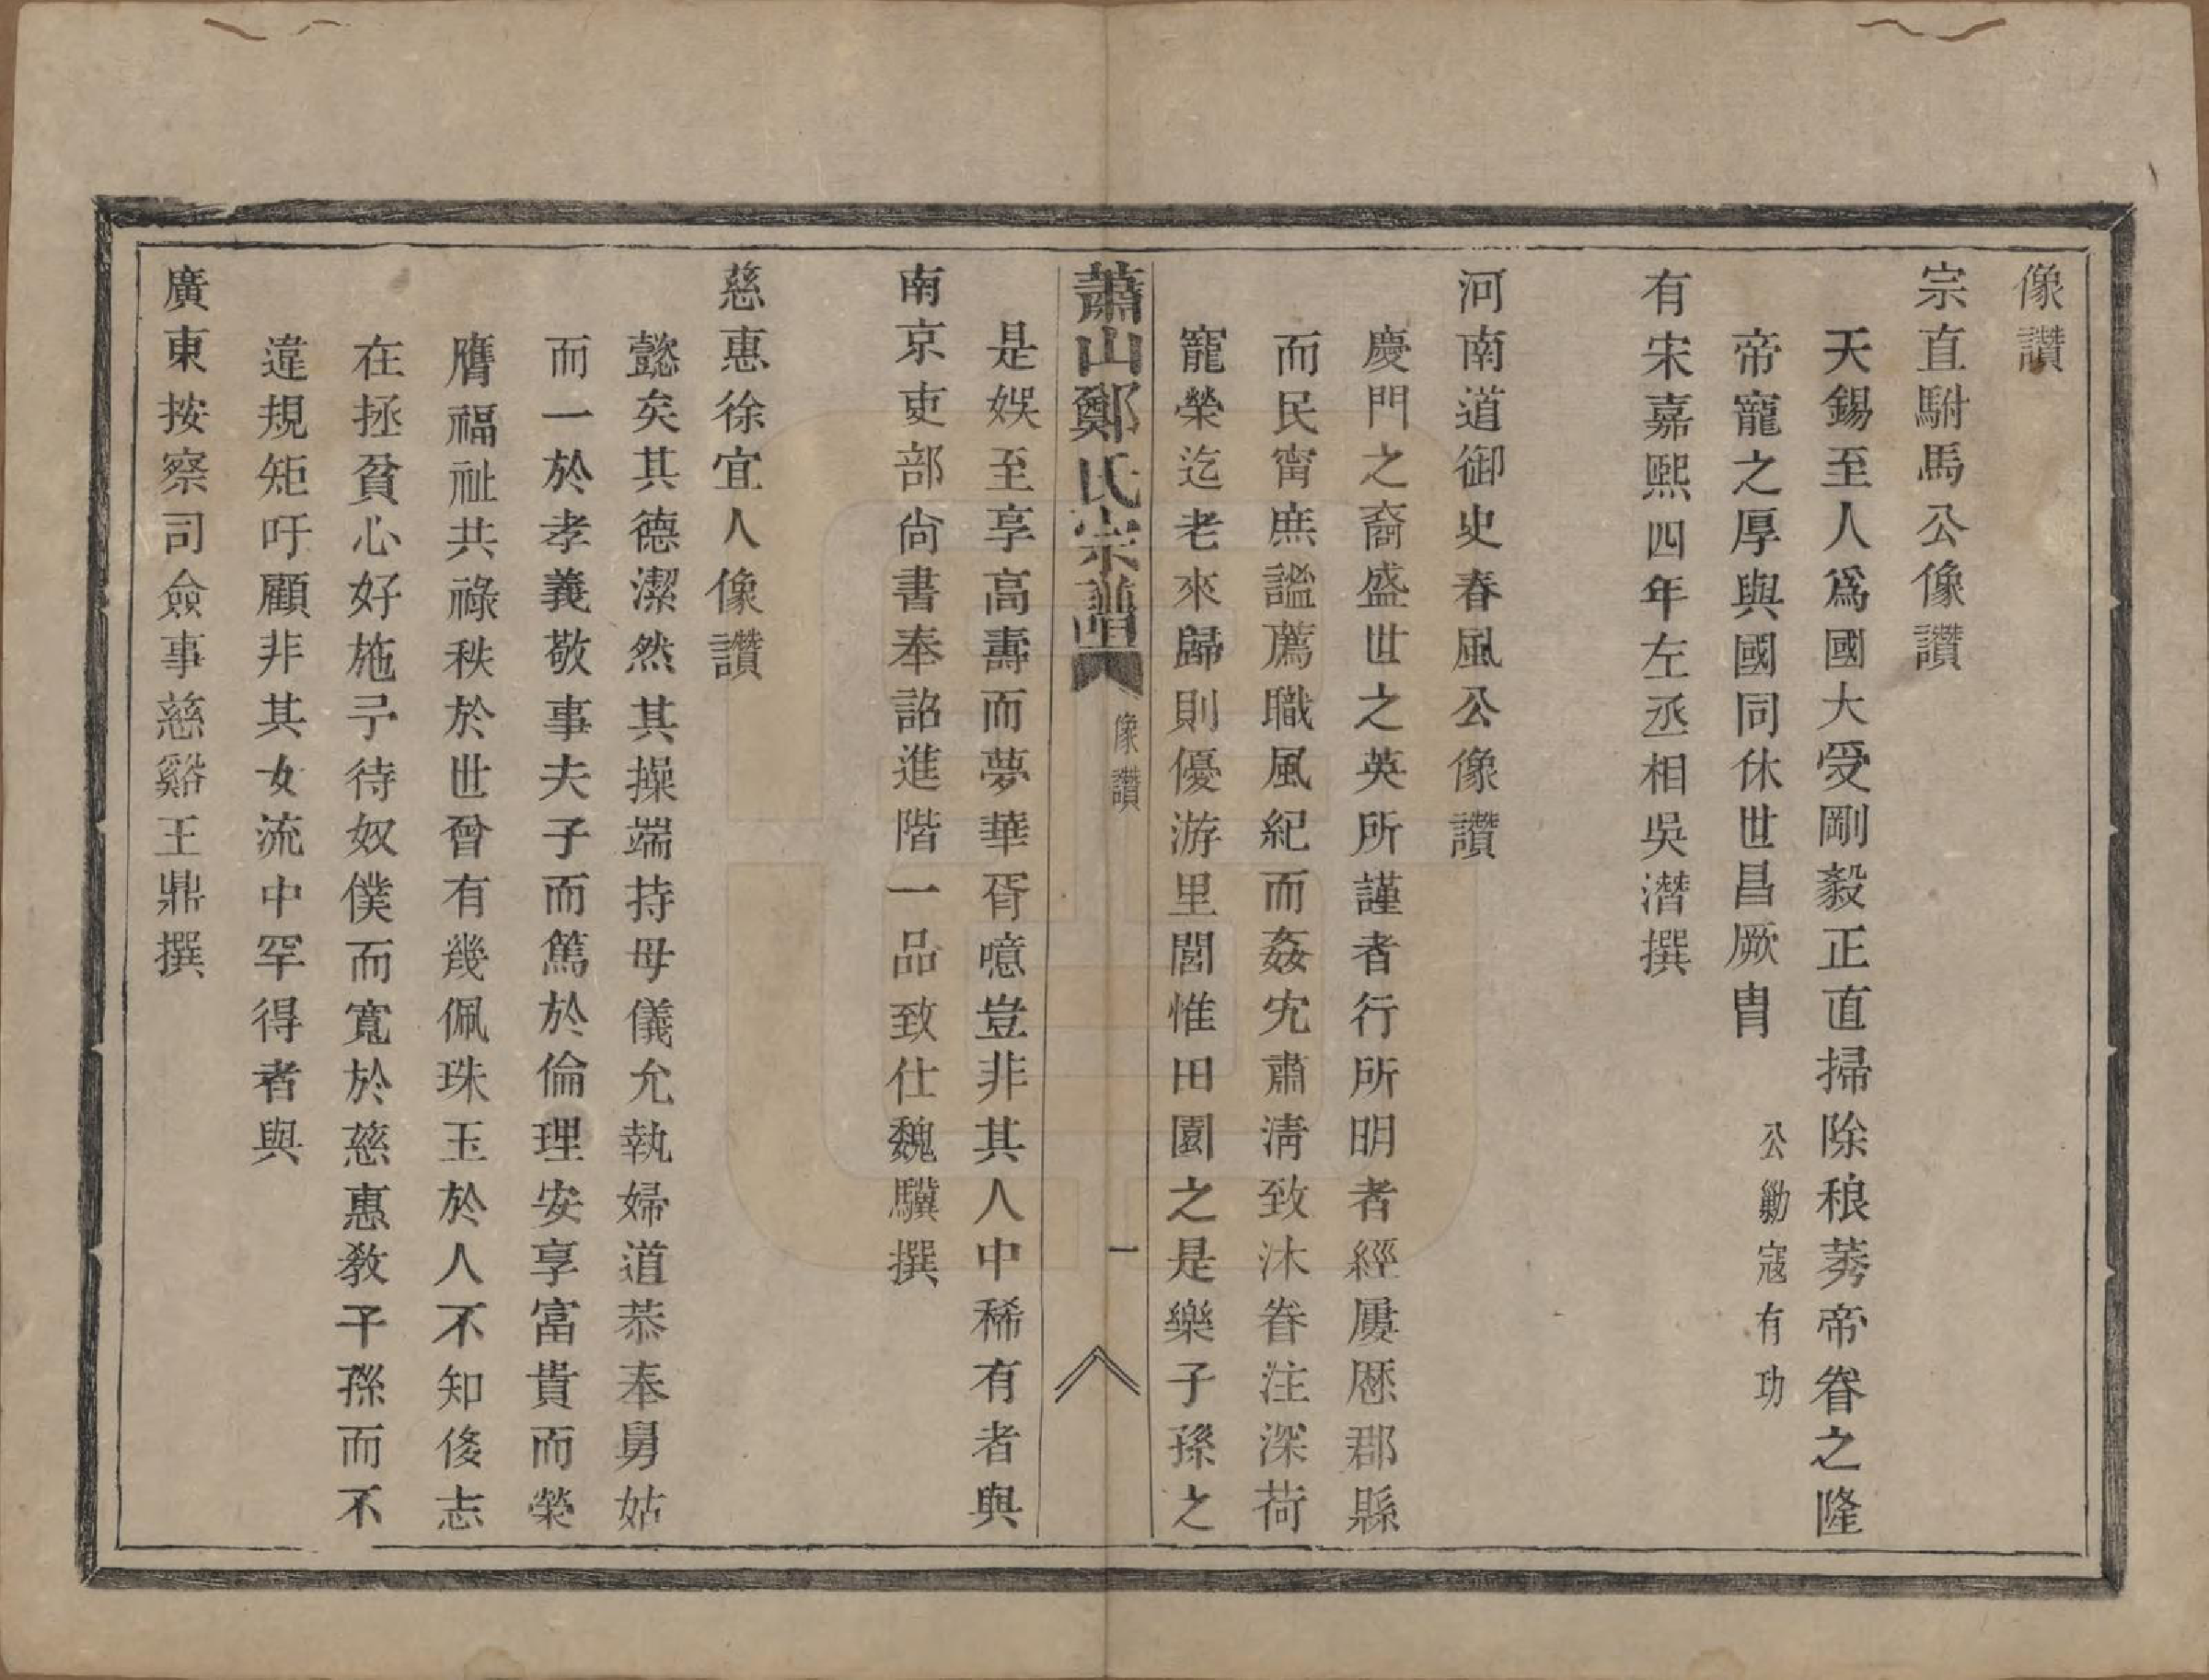 像讚
宗直駙馬公像讚
天錫至人爲國大受剛毅正直掃除稂莠帝眷之隆
帝寵之厚與國同休世昌厥冑　公勦寇有功
有宋嘉熙四年左丞相吳潛撰
河南道御史春風公像讚
慶門之裔盛世之英所謹者行所明者經屢歷郡縣
而民甯庶謐薦職風紀而姦宄肅淸致沐眷注深荷
寵榮迄老來歸則優游里閭惟田園之是樂子孫之
蕭山鄭氏宗譜　像讚　一
是娛至享高壽而夢華胥噫豈非其人中稀有者與
南京吏部尙書奉詔進階一品致仕魏驥撰
慈惠徐宜人像讚
懿矣其德潔然其操端持母儀允執婦道恭奉舅姑
而一於孝義敬事夫子而篤於倫理安享富貴而榮
膺福祉共祿秩於世曾有幾佩珠玉於人不知後志
在拯貧心好施予待奴僕而寬於慈惠敎子孫而不
違規矩吁顧非其女流中罕得者與
廣東按察司僉事慈谿王鼎撰